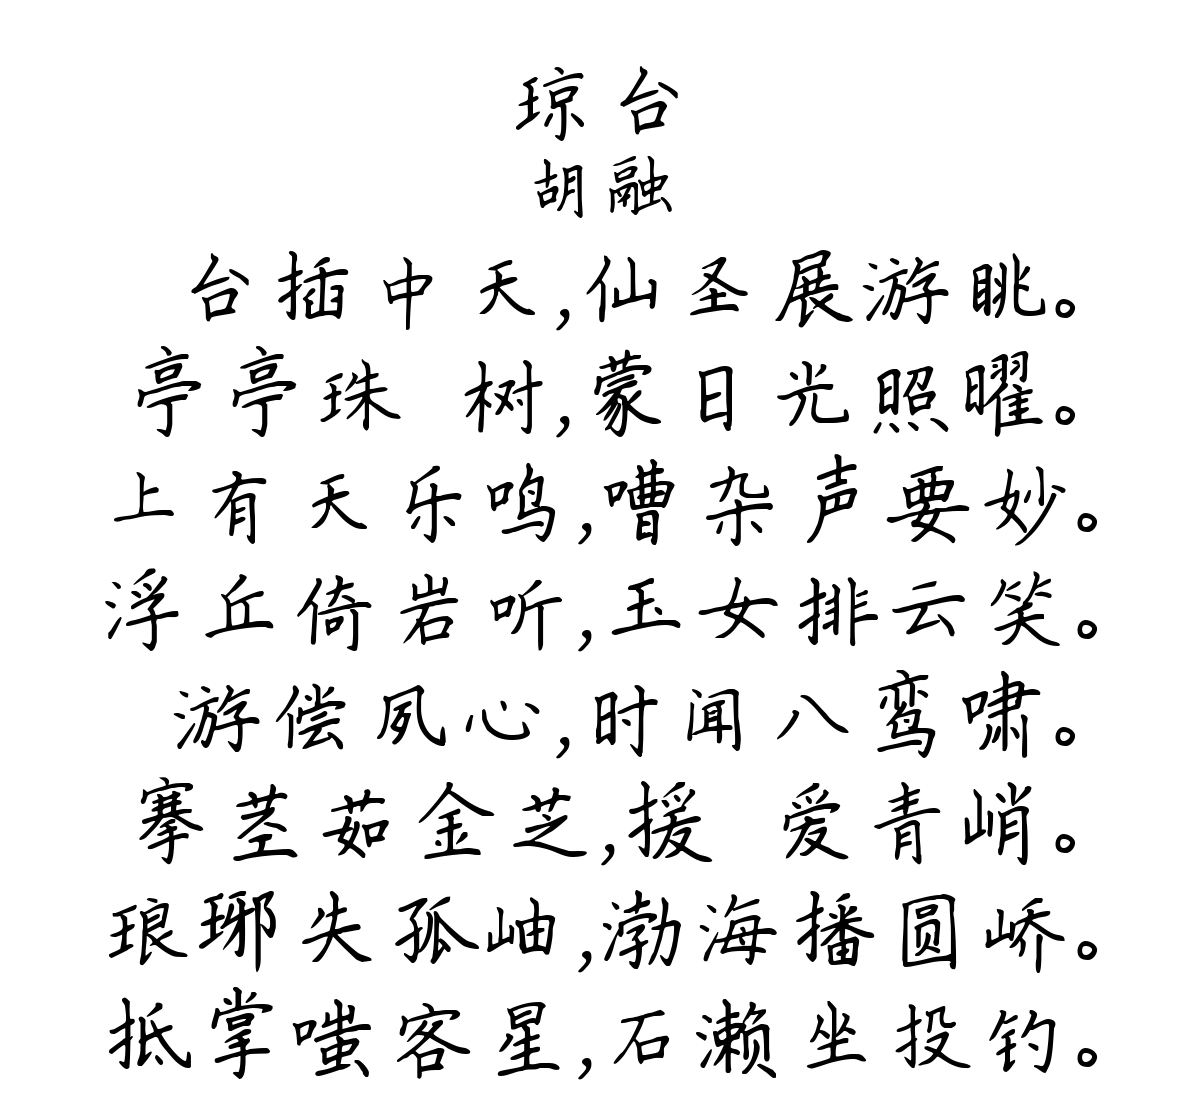 琼台
胡融
台插中天,仙圣展游眺。
亭亭珠 树,蒙日光照曜。
上有天乐鸣,嘈杂声要妙。
浮丘倚岩听,玉女排云笑。
游偿夙心,时闻八鸾啸。
搴茎茹金芝,援 爱青峭。
琅琊失孤岫,渤海播圆峤。
抵掌嗤客星,石濑坐投钓。